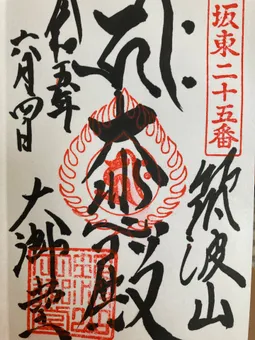 坂東二十五番
筑波山
大悲殿
令和五年
六月四日
大御堂